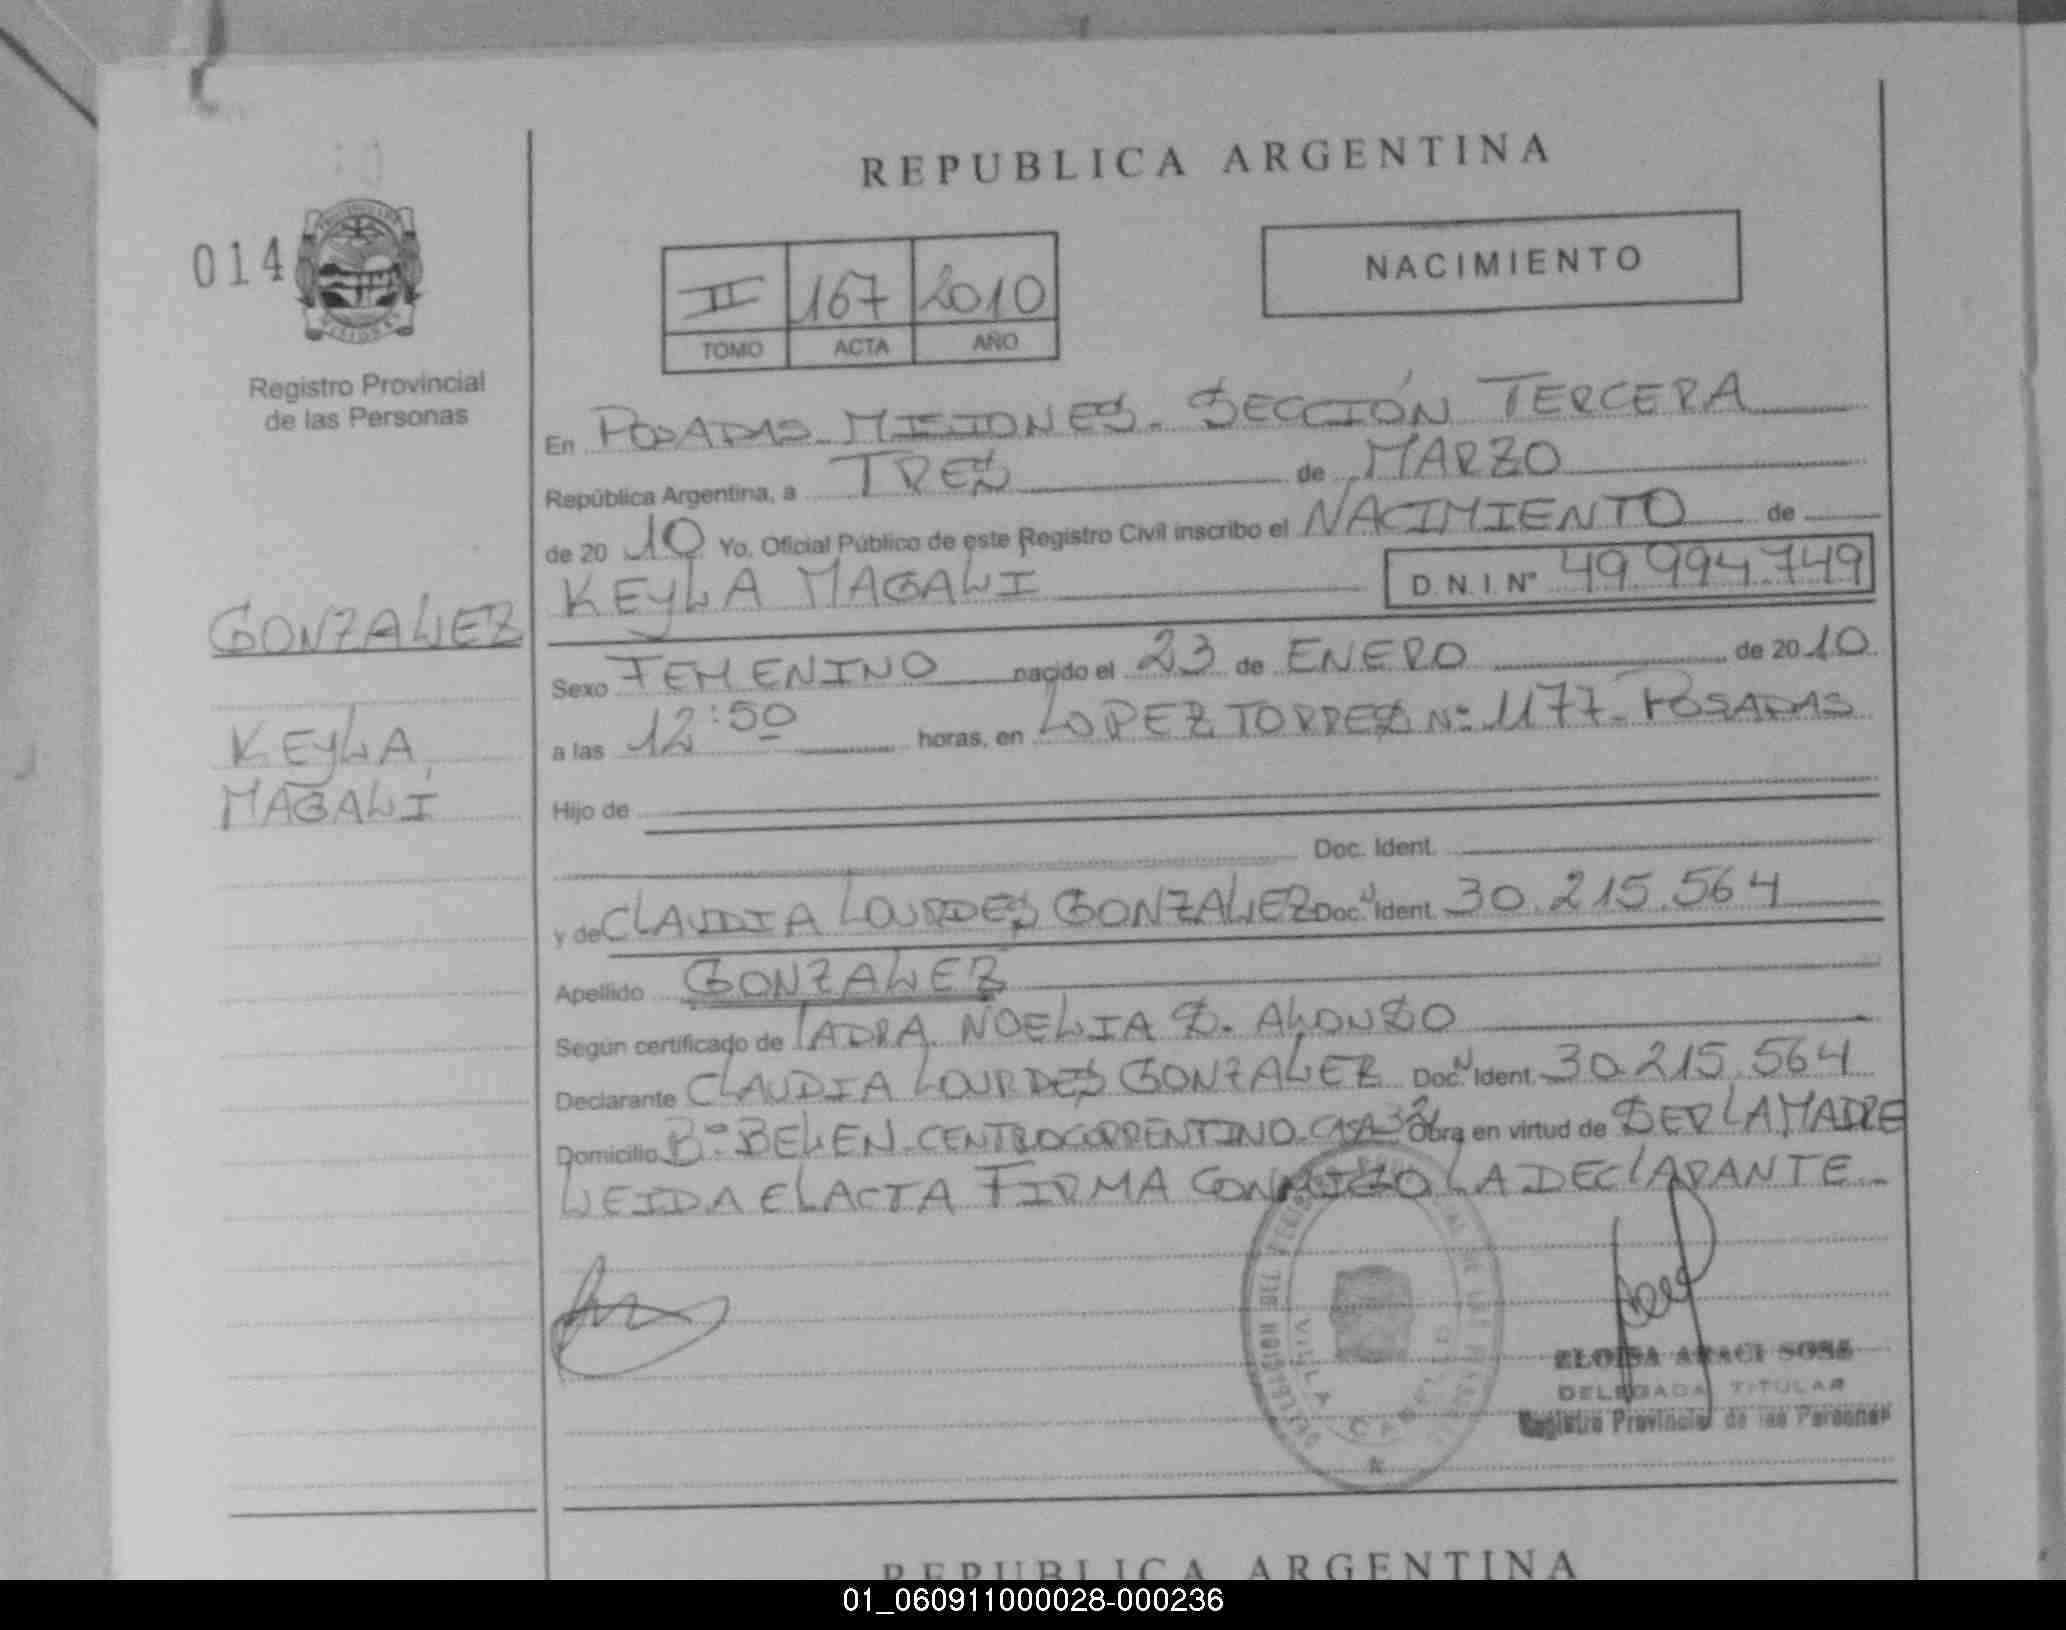 REPUBLICA ARGENTINA
014
NACIMIENTO
II 167 2010
TOMO ACTA AÑO
Registro Provincial
de las Personas
En POSADAS MISIONES. SECCIÓN TERCERA
República Argentina, a TRES de MARZO
de 20 10 Yo, Oficial Público de este Registro Civil inscribo el NACIMIENTO de
KEYLA MAGALI D.N.I. Nº 49.994.749
GONZALEZ
KEYLA
MAGALI
Sexo FEMENINO nacido el 23 de ENERO de 2010
a las 12:50 horas, en LOPEZ TORRES Nº 1177. POSADAS
Hijo de
Doc. Ident.
y de CLAUDIA LOURDES GONZALEZ Doc. Ident. 30.215.564
Apellido GONZALEZ
Según certificado de NOELIA S. ALONSO
Declarante CLAUDIA LOURDES GONZALEZ Doc. Ident. 30.215.564
Domicilio Bº BELEN-CENTROCORRENTINO-CASA Obra en virtud de SER LA MADRE
LEIDA EL ACTA FIRMA CONMIGO LA DECLARANTE
DELEGACION DEL REGISTRO
VILLA CABELLO
ELOISA ARACI SOSA
DELEGADA TITULAR
Registro Provincial de las Personas
REPUBLICA ARGENTINA
01_060911000028-000236